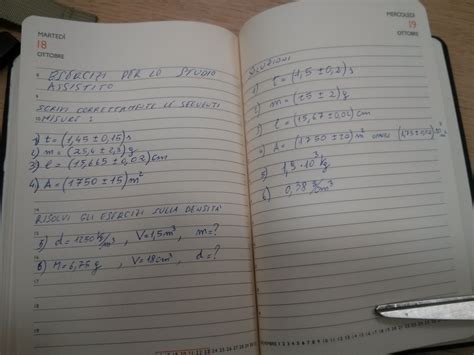 MARTEDÌ
18
OTTOBRE
ESERCIZI PER LO STUDIO
ASSISTITO
SCRIVI CORRETTAMENTE LE SEGUENTI
MISURE:
1) t = (1,45 ± 0,15) s
2) m = (25,4 ± 2,3) g
3) l = (15,665 ± 0,02) cm
4) A = (1750 ± 15) m²
RISOLVI GLI ESERCIZI SULLA DENSITÀ
5) d = 1250 kg/m³, V = 1,5 m³, m = ?
6) M = 6,75 g, V = 18 cm³, d = ?
MERCOLEDÌ
19
OTTOBRE
SOLUZIONI
1) t = (1,5 ± 0,2) s
2) m = (25 ± 2) g
3) l = (15,67 ± 0,02) cm
4) A = (1750 ± 10) m²
5) 1,9 · 10³ kg
6) 0,38 g/cm³